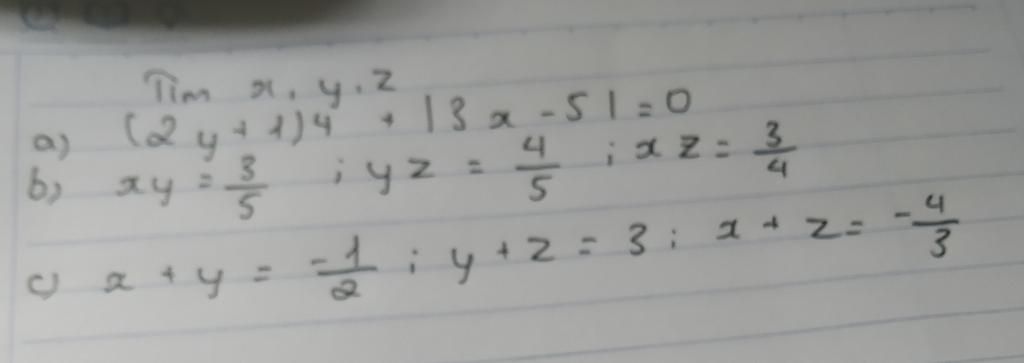 Tìm x, y, z
a) (2y+1)4 + |3x-5| = 0
b) xy = 3/5 ; yz = 4/5 ; xz = 3/4
c) x + y = -1/2 ; y + z = 3 ; x + z = -4/3